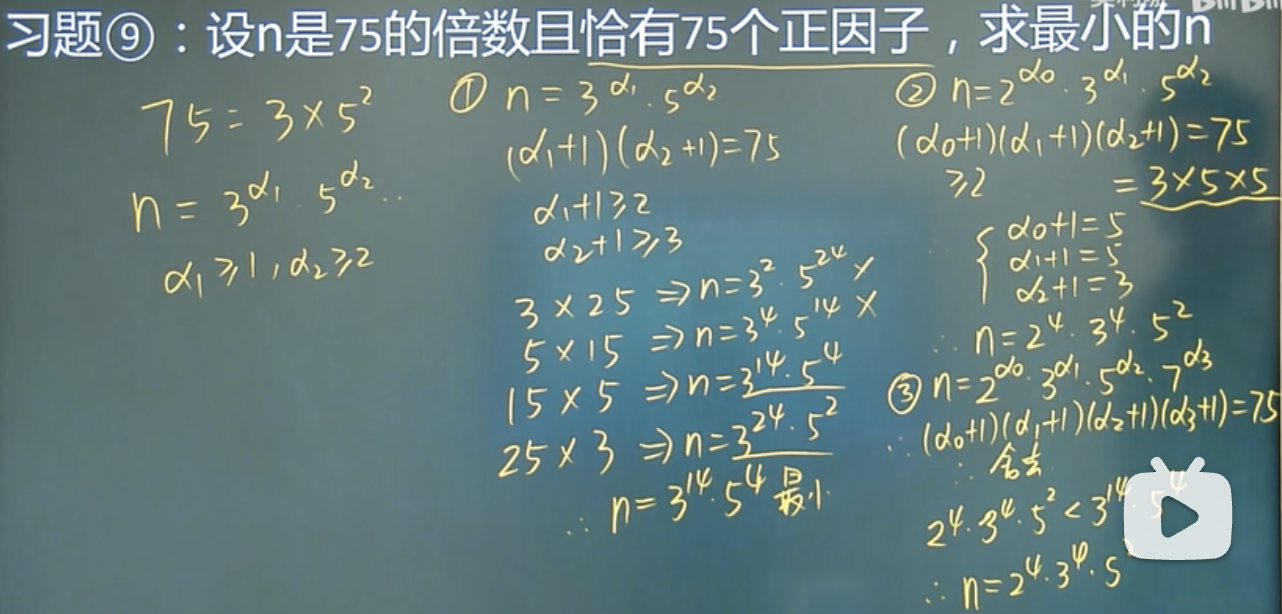 习题⑨：设n是75的倍数且恰有75个正因子，求最小的n
75 = 3×5²
n = 3^α₁ · 5^α₂ ··
α₁≥1, α₂≥2
① n = 3^α₁ · 5^α₂
(α₁+1)(α₂+1)=75
α₁+1≥2
α₂+1≥3
3×25 ⇒ n=3²·5²⁴ ×
5×15 ⇒ n=3⁴·5¹⁴ ×
15×5 ⇒ n=3¹⁴·5⁴
25×3 ⇒ n=3²⁴·5²
∴ n=3¹⁴·5⁴ 最小
② n=2^α₀ · 3^α₁ · 5^α₂
(α₀+1)(α₁+1)(α₂+1)=75
≥2 = 3×5×5
{ α₀+1=5
α₁+1=5
α₂+1=3
∴ n=2⁴·3⁴·5²
③ n=2^α₀·3^α₁·5^α₂·7^α₃
∴ (α₀+1)(α₁+1)(α₂+1)(α₃+1)=75
∴ 舍去
2⁴·3⁴·5² < 3¹⁴·5⁴
∴ n=2⁴·3⁴·5²